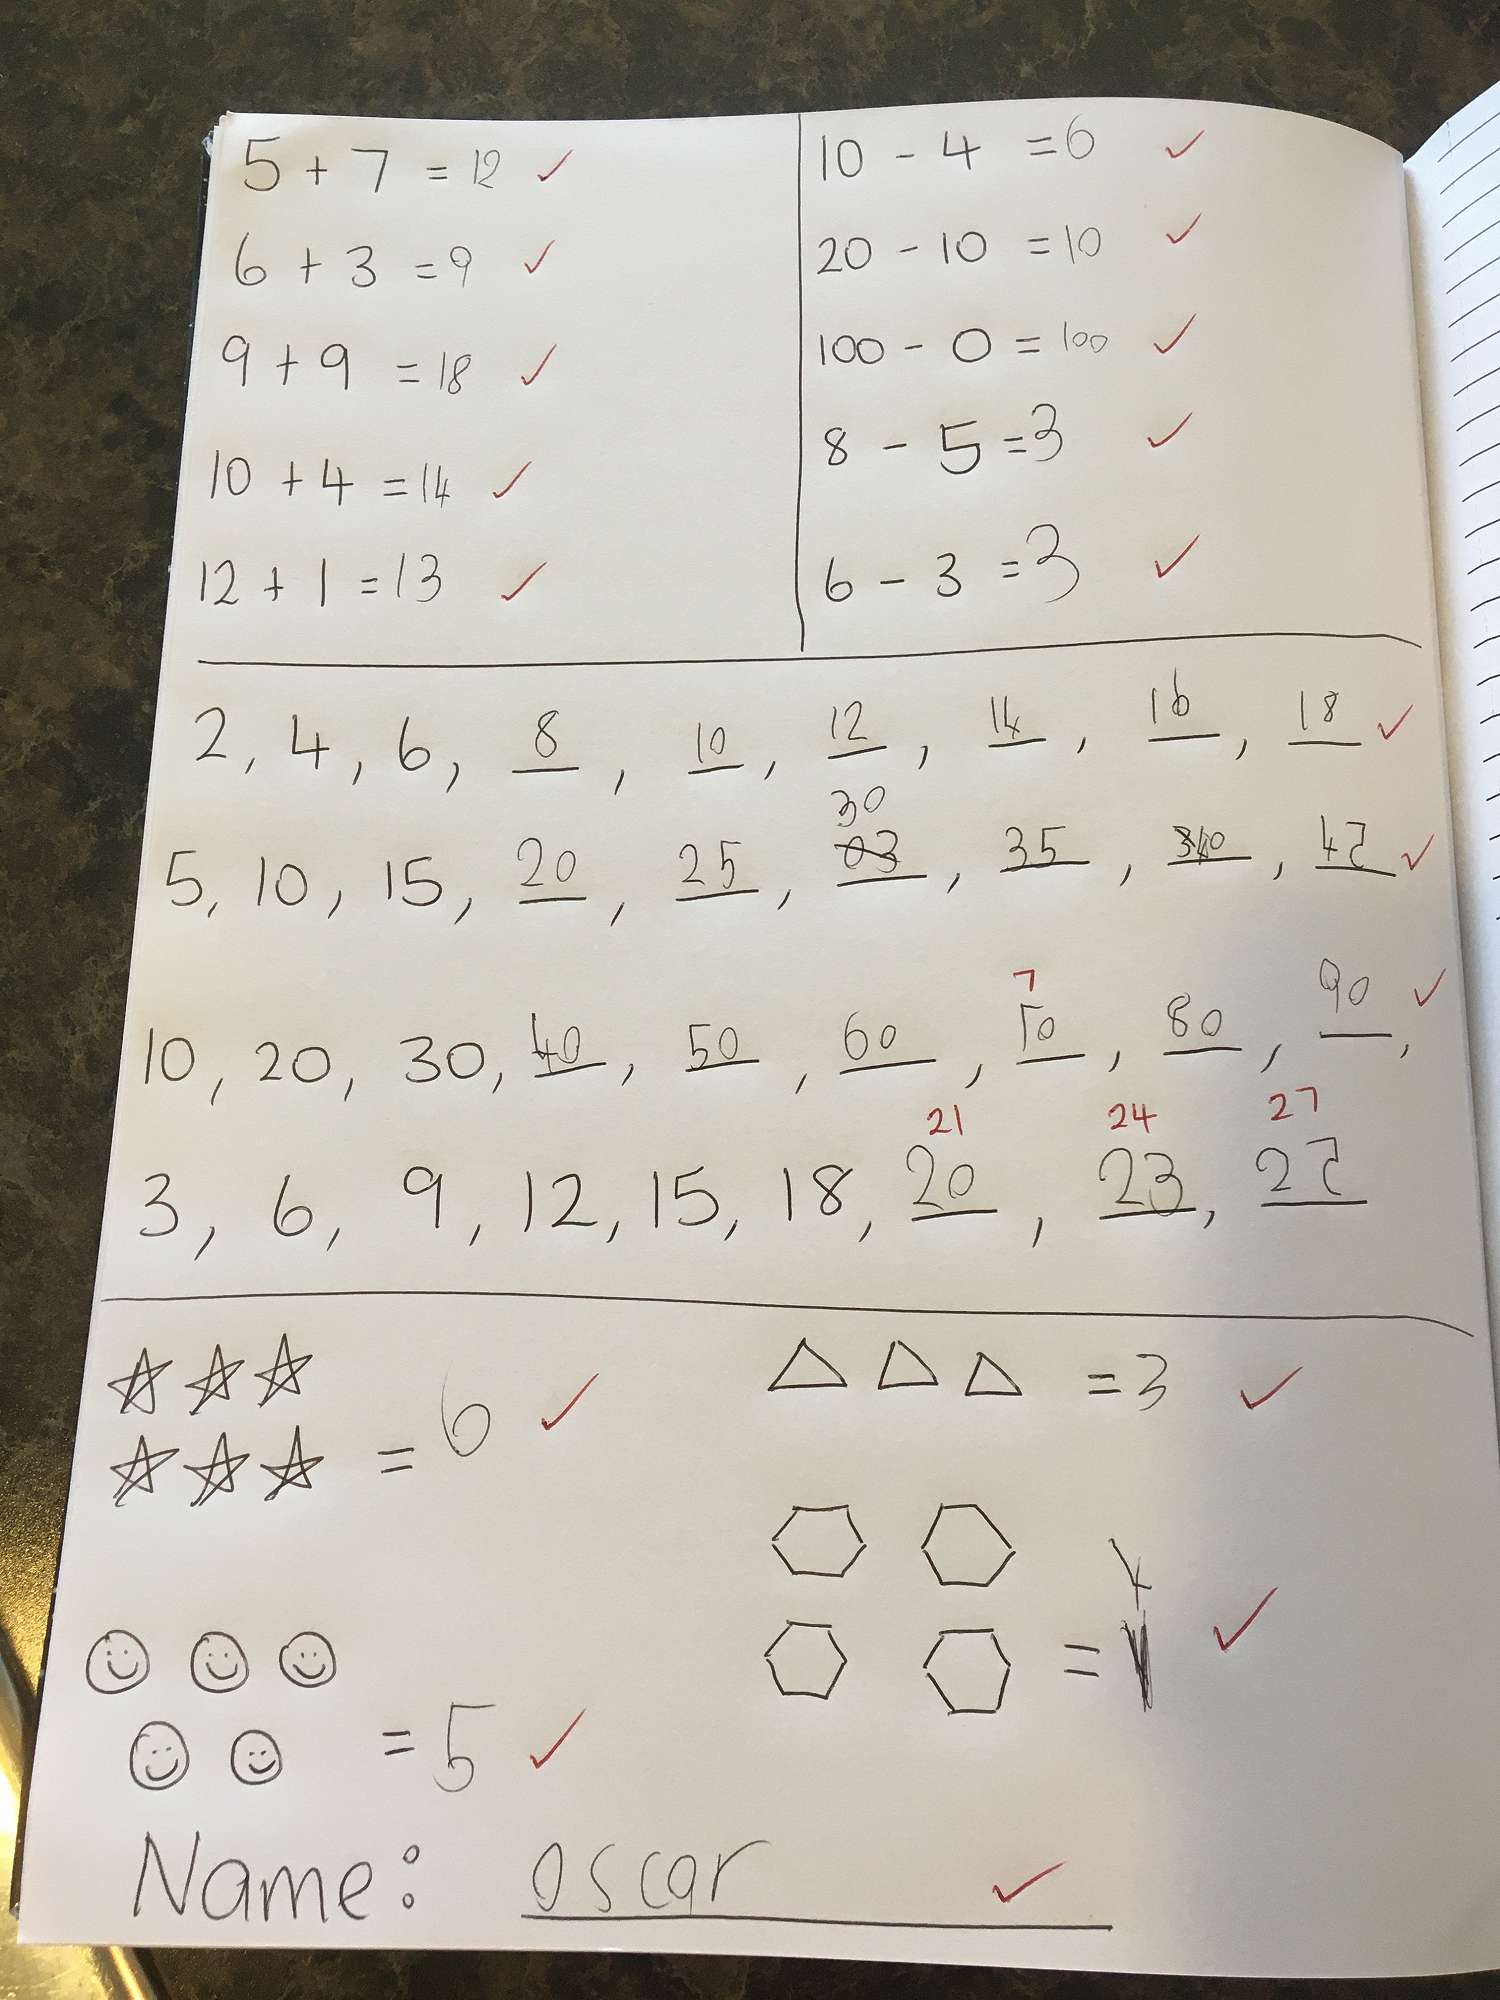 5 + 7 = 12 ✓
6 + 3 = 9 ✓
9 + 9 = 18 ✓
10 + 4 = 14 ✓
12 + 1 = 13 ✓
10 - 4 = 6 ✓
20 - 10 = 10 ✓
100 - 0 = 100 ✓
8 - 5 = 3 ✓
6 - 3 = 3 ✓
2, 4, 6, 8, 10, 12, 14, 16, 18 ✓
30
5, 10, 15, 20, 25, 03, 35, 40, 45 ✓
7
10, 20, 30, 40, 50, 60, 50, 80, 90, ✓
21 24 27
3, 6, 9, 12, 15, 18, 20, 23, 25
= 6 ✓
= 3 ✓
= ✓
= 5 ✓
Name: oscar ✓